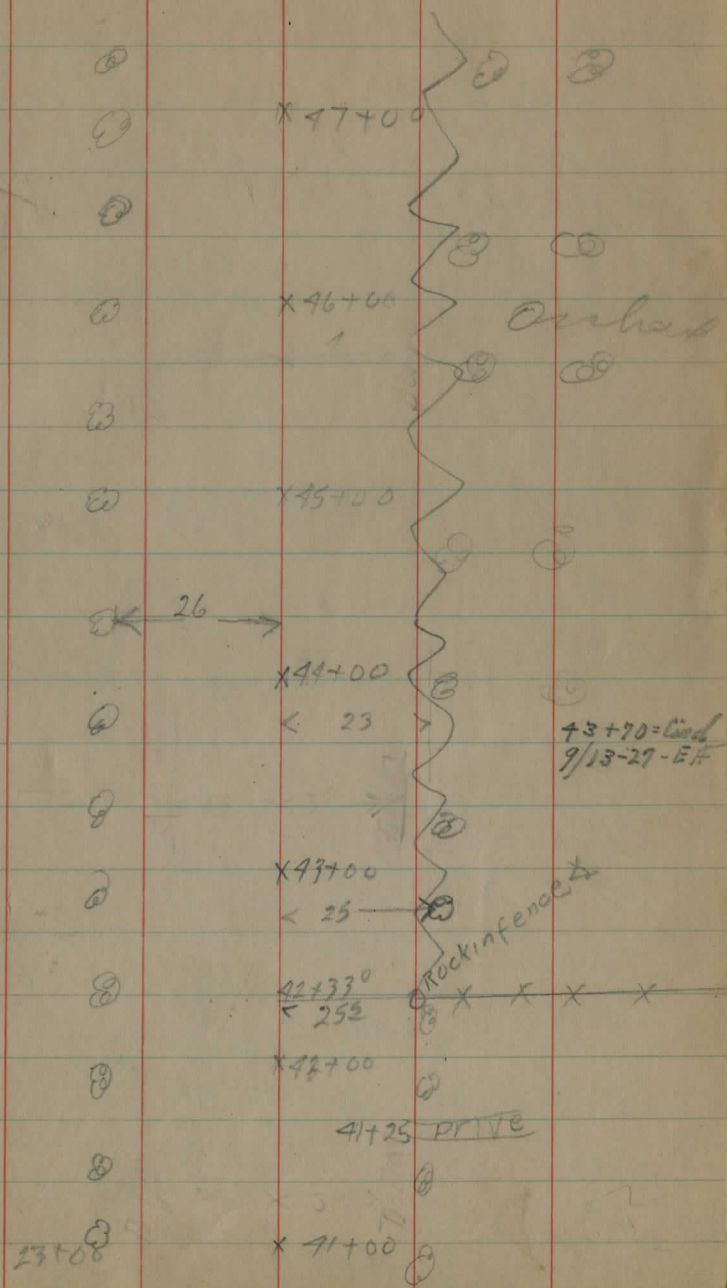 47+00
46+00
Orchard
45+00
26
44+00
23
43+70=
9/13-27-EA
43+00
25
Rock in fence
42+33⁰
25⁵
42+00
41+25 Drive
41+00